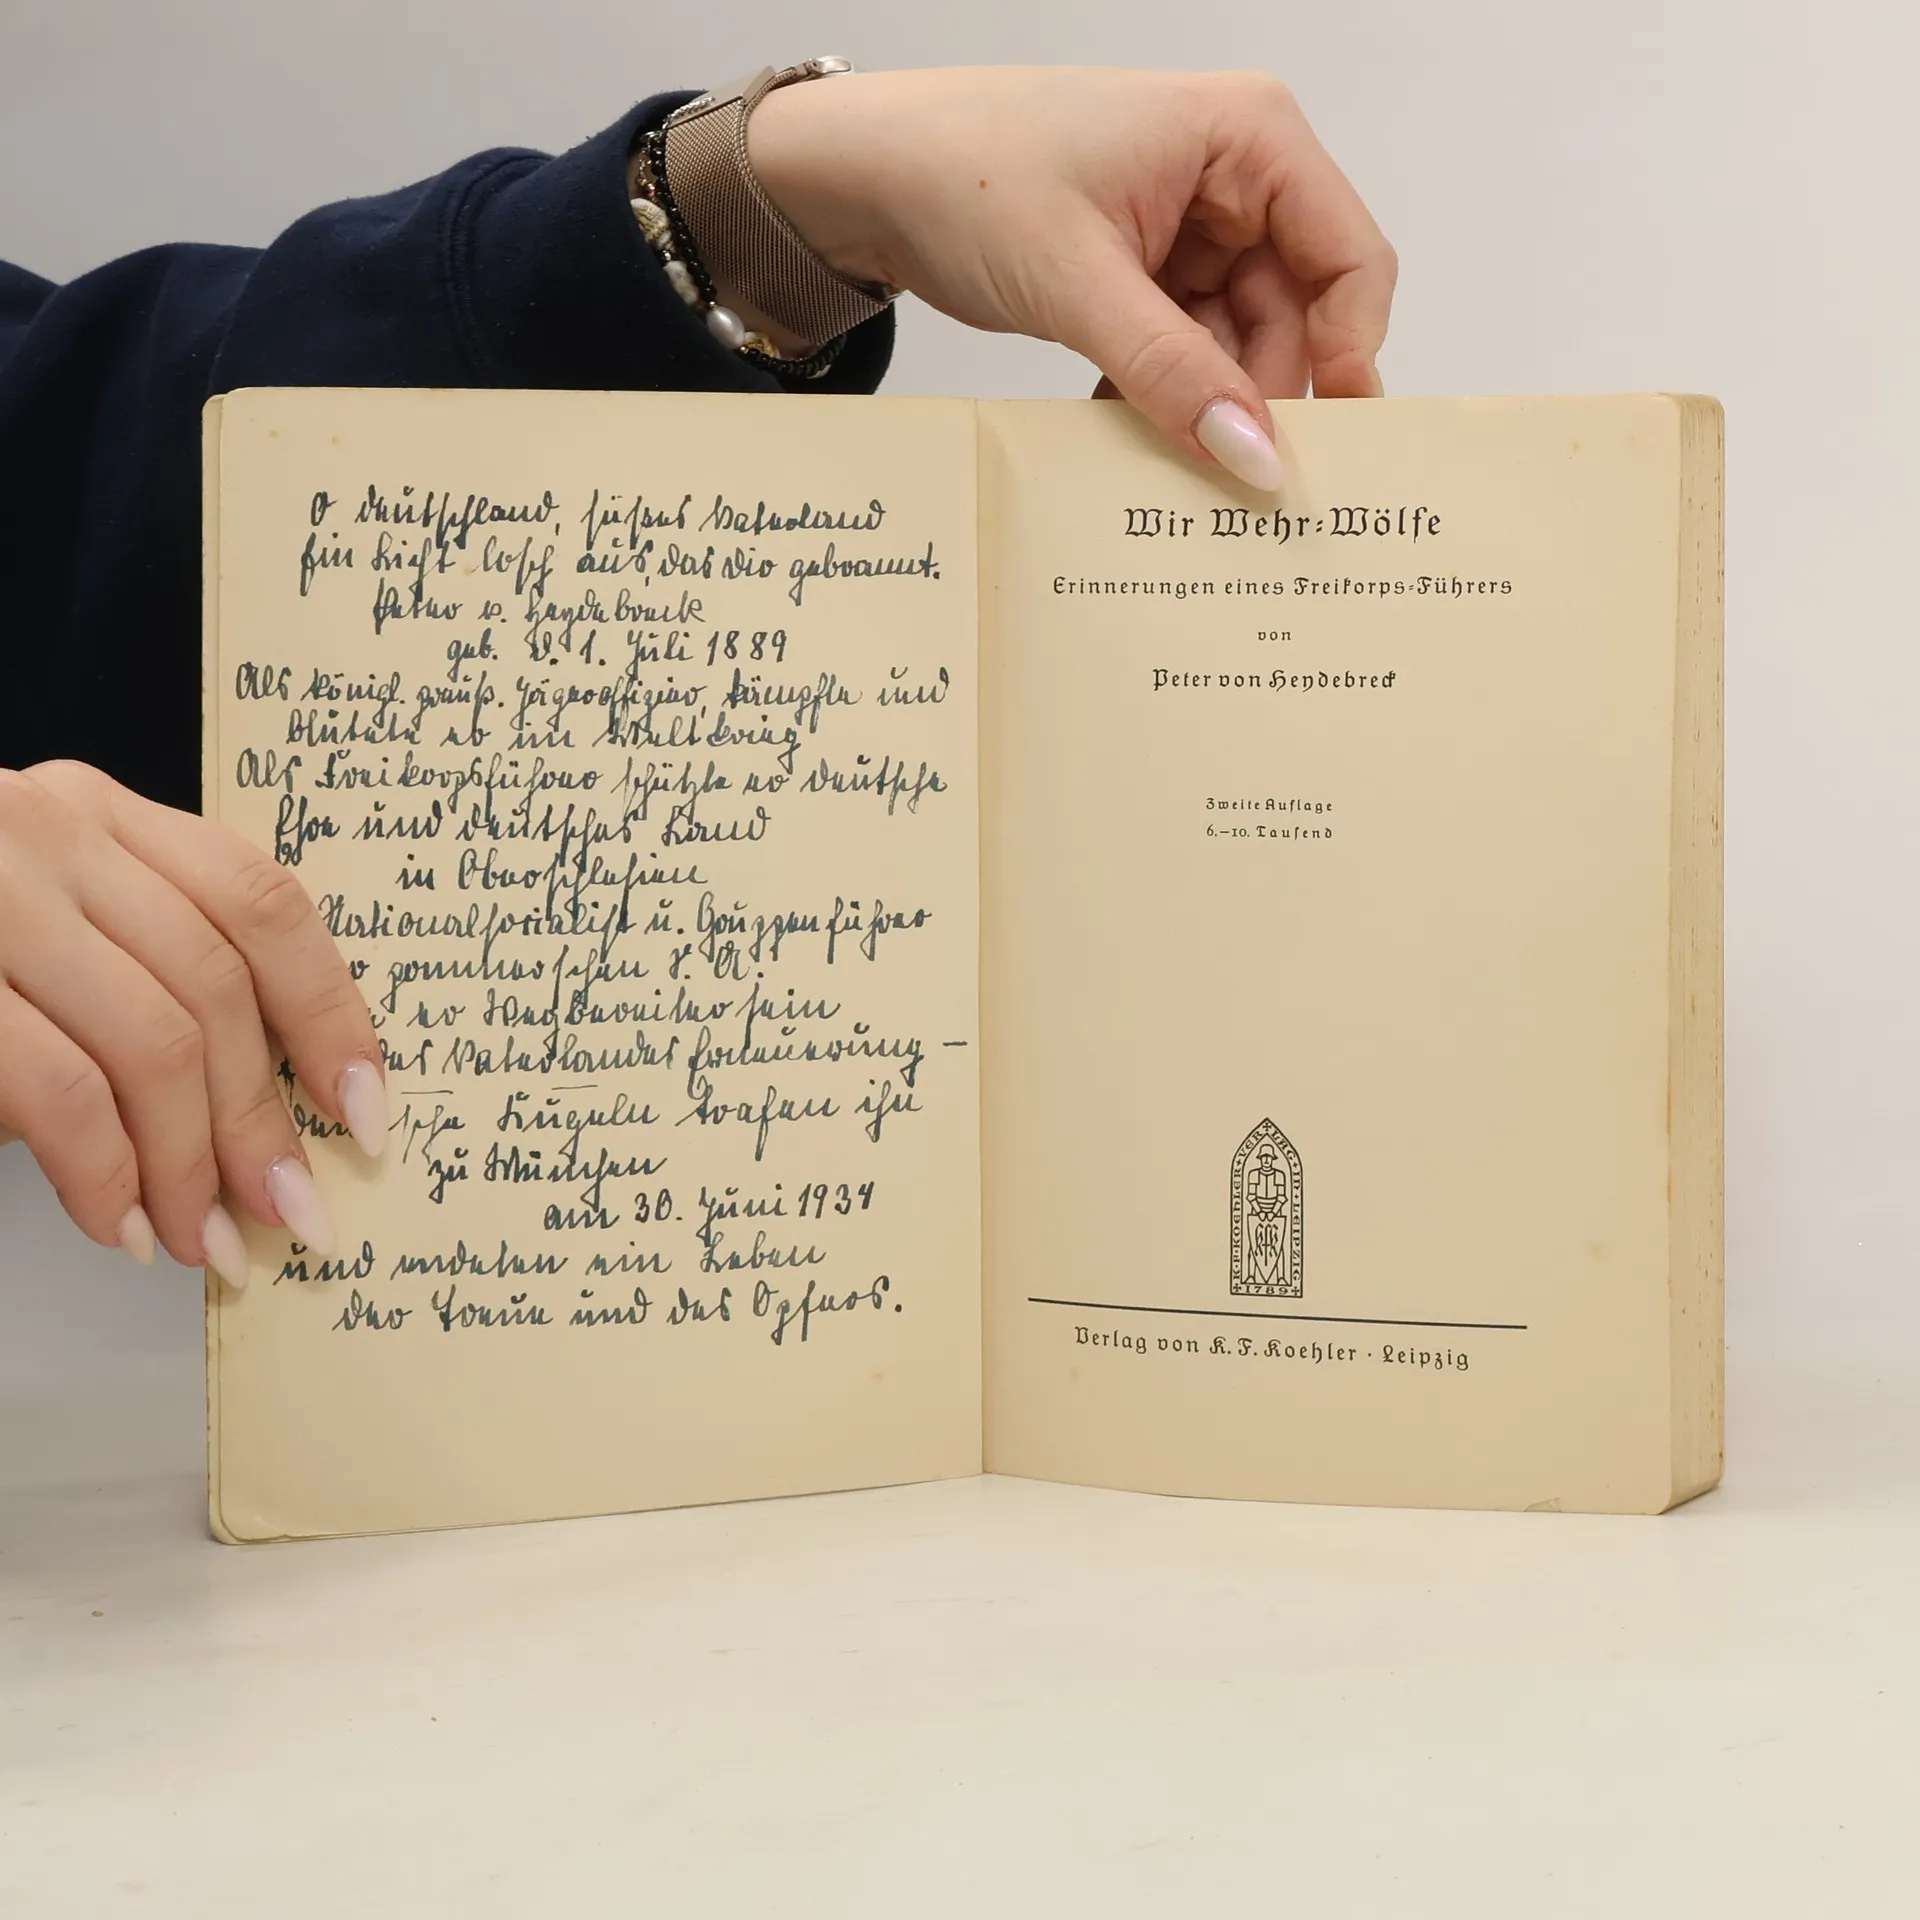 O Deutschland, süßes Vaterland
Ein Licht losch aus, das dir gebrannt.
Peter v. Heydebreck
geb. d. 1. Juli 1889
Als königl. preuß. Jägeroffizier, kämpfte und
blutete er im Weltkrieg
Als Freikorpsführer schützte er deutsche
Ehre und deutsches Land
in Oberschlesien
Nationalsocialist u. Gruppenführer
pommerschen S. A.
er Wegbereiter sein
des Vaterlandes Erneuerung —
Kugeln trafen ihn
zu München
am 30. Juni 1934
und endeten ein Leben
der Treue und des Opfers.
Wir Wehr=Wölfe
Erinnerungen eines Freikorps=Führers
von
Peter von Heydebreck
Zweite Auflage
6.–10. Tausend
K·F·KOEHLER·VERLAG·IN·LEIPZIG
1789
Verlag von K. F. Koehler · Leipzig